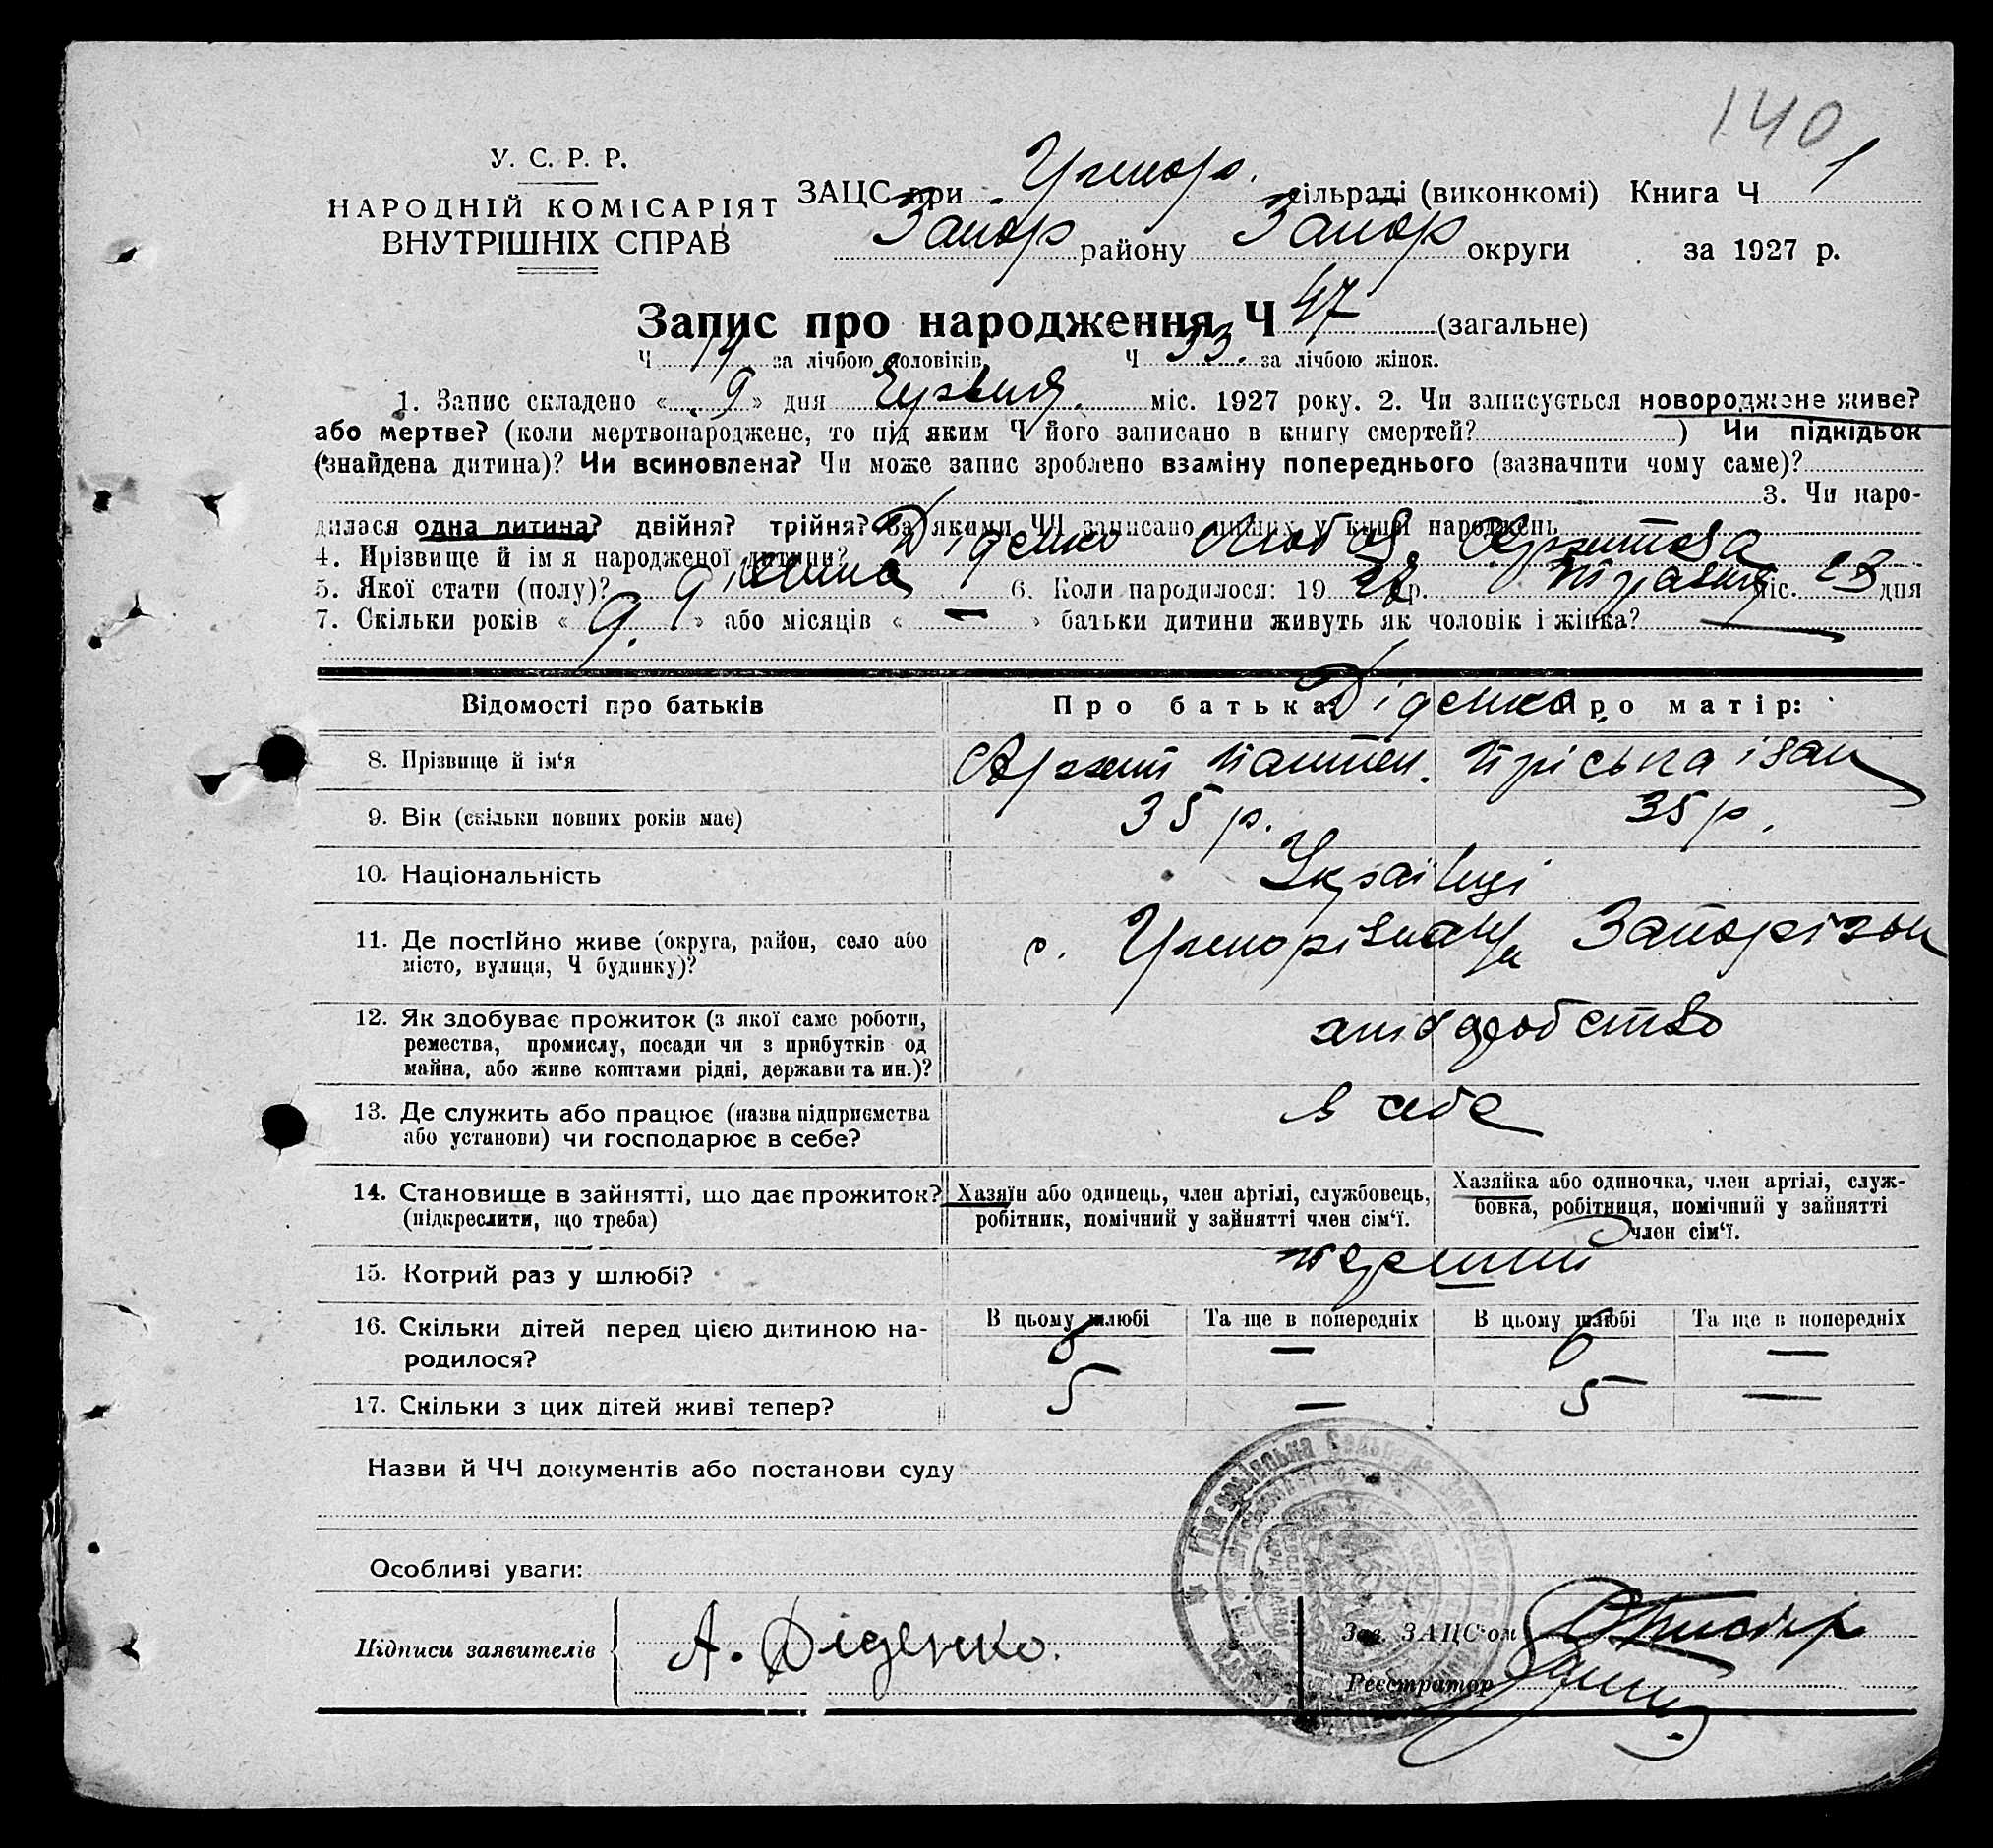 140
У. С. Р. Р.
НАРОДНІЙ КОМІСАРІЯТ
ВНУТРІШНІХ СПРАВ
ЗАЦС при сільраді (виконкомі) Книга Ч 1
Запор району Запор округи за 1927 р.
Запис про народження Ч 47 (загальне)
Ч 14 за лічбою чоловіків Ч 33 за лічбою жінок.
1. Запис складено « 9 » дня Червня міс. 1927 року. 2. Чи записується новороджене живе?
або мертве? (коли мертвонароджене, то під яким Ч його записано в книгу смертей? ) Чи підкідьок
(знайдена дитина)? Чи всиновлена? Чи може запис зроблено взаміну попереднього (зазначити чому саме)?
3. Чи наро-
дилася одна дитина? двійня? трійня? За якими ЧЧ записано инших у книзі народжень
4. Прізвище й ім'я народженої дитини? Діденко Любов Архитова
5. Якої стати (полу)? дівчина 6. Коли народилося: 19 27 р. травня міс. 28 дня
7. Скільки років « 9 » або місяців « — » батьки дитини живуть як чоловік і жінка?
Відомості про батьків Про батька: Про матір:
Діденко
8. Прізвище й ім'я Архип Пантел. Пріська Іван
9. Вік (скільки повних років має) 35 р. 35 р.
10. Національність Українці
11. Де постійно живе (округа, район, село або с. Запорізьк
місто, вулиця, Ч будинку)?
12. Як здобуває прожиток (з якої саме роботи, хліборобство
ремества, промислу, посади чи з прибутків од
майна, або живе коштами рідні, держави та ин.)?
13. Де служить або працює (назва підприємства в себе
або установи) чи господарює в себе?
14. Становище в зайнятті, що дає прожиток? Хазяїн або одинець, член артілі, службовець, Хазяйка або одиночка, член артілі, служ-
(підкреслити, що треба) робітник, помічний у зайнятті член сім'ї. бовка, робітниця, помічний у зайнятті
член сім'ї.
15. Котрий раз у шлюбі? перший
16. Скільки дітей перед цією дитиною на- В цьому шлюбі Та ще в попередніх В цьому шлюбі Та ще в попередніх
родилося? 6 — 6 —
17. Скільки з цих дітей живі тепер? 5 — 5 —
Назви й ЧЧ документів або постанови суду
Особливі уваги:
Підписи заявителів А. Діденко. Зав. ЗАЦС'ом
Реєстратор